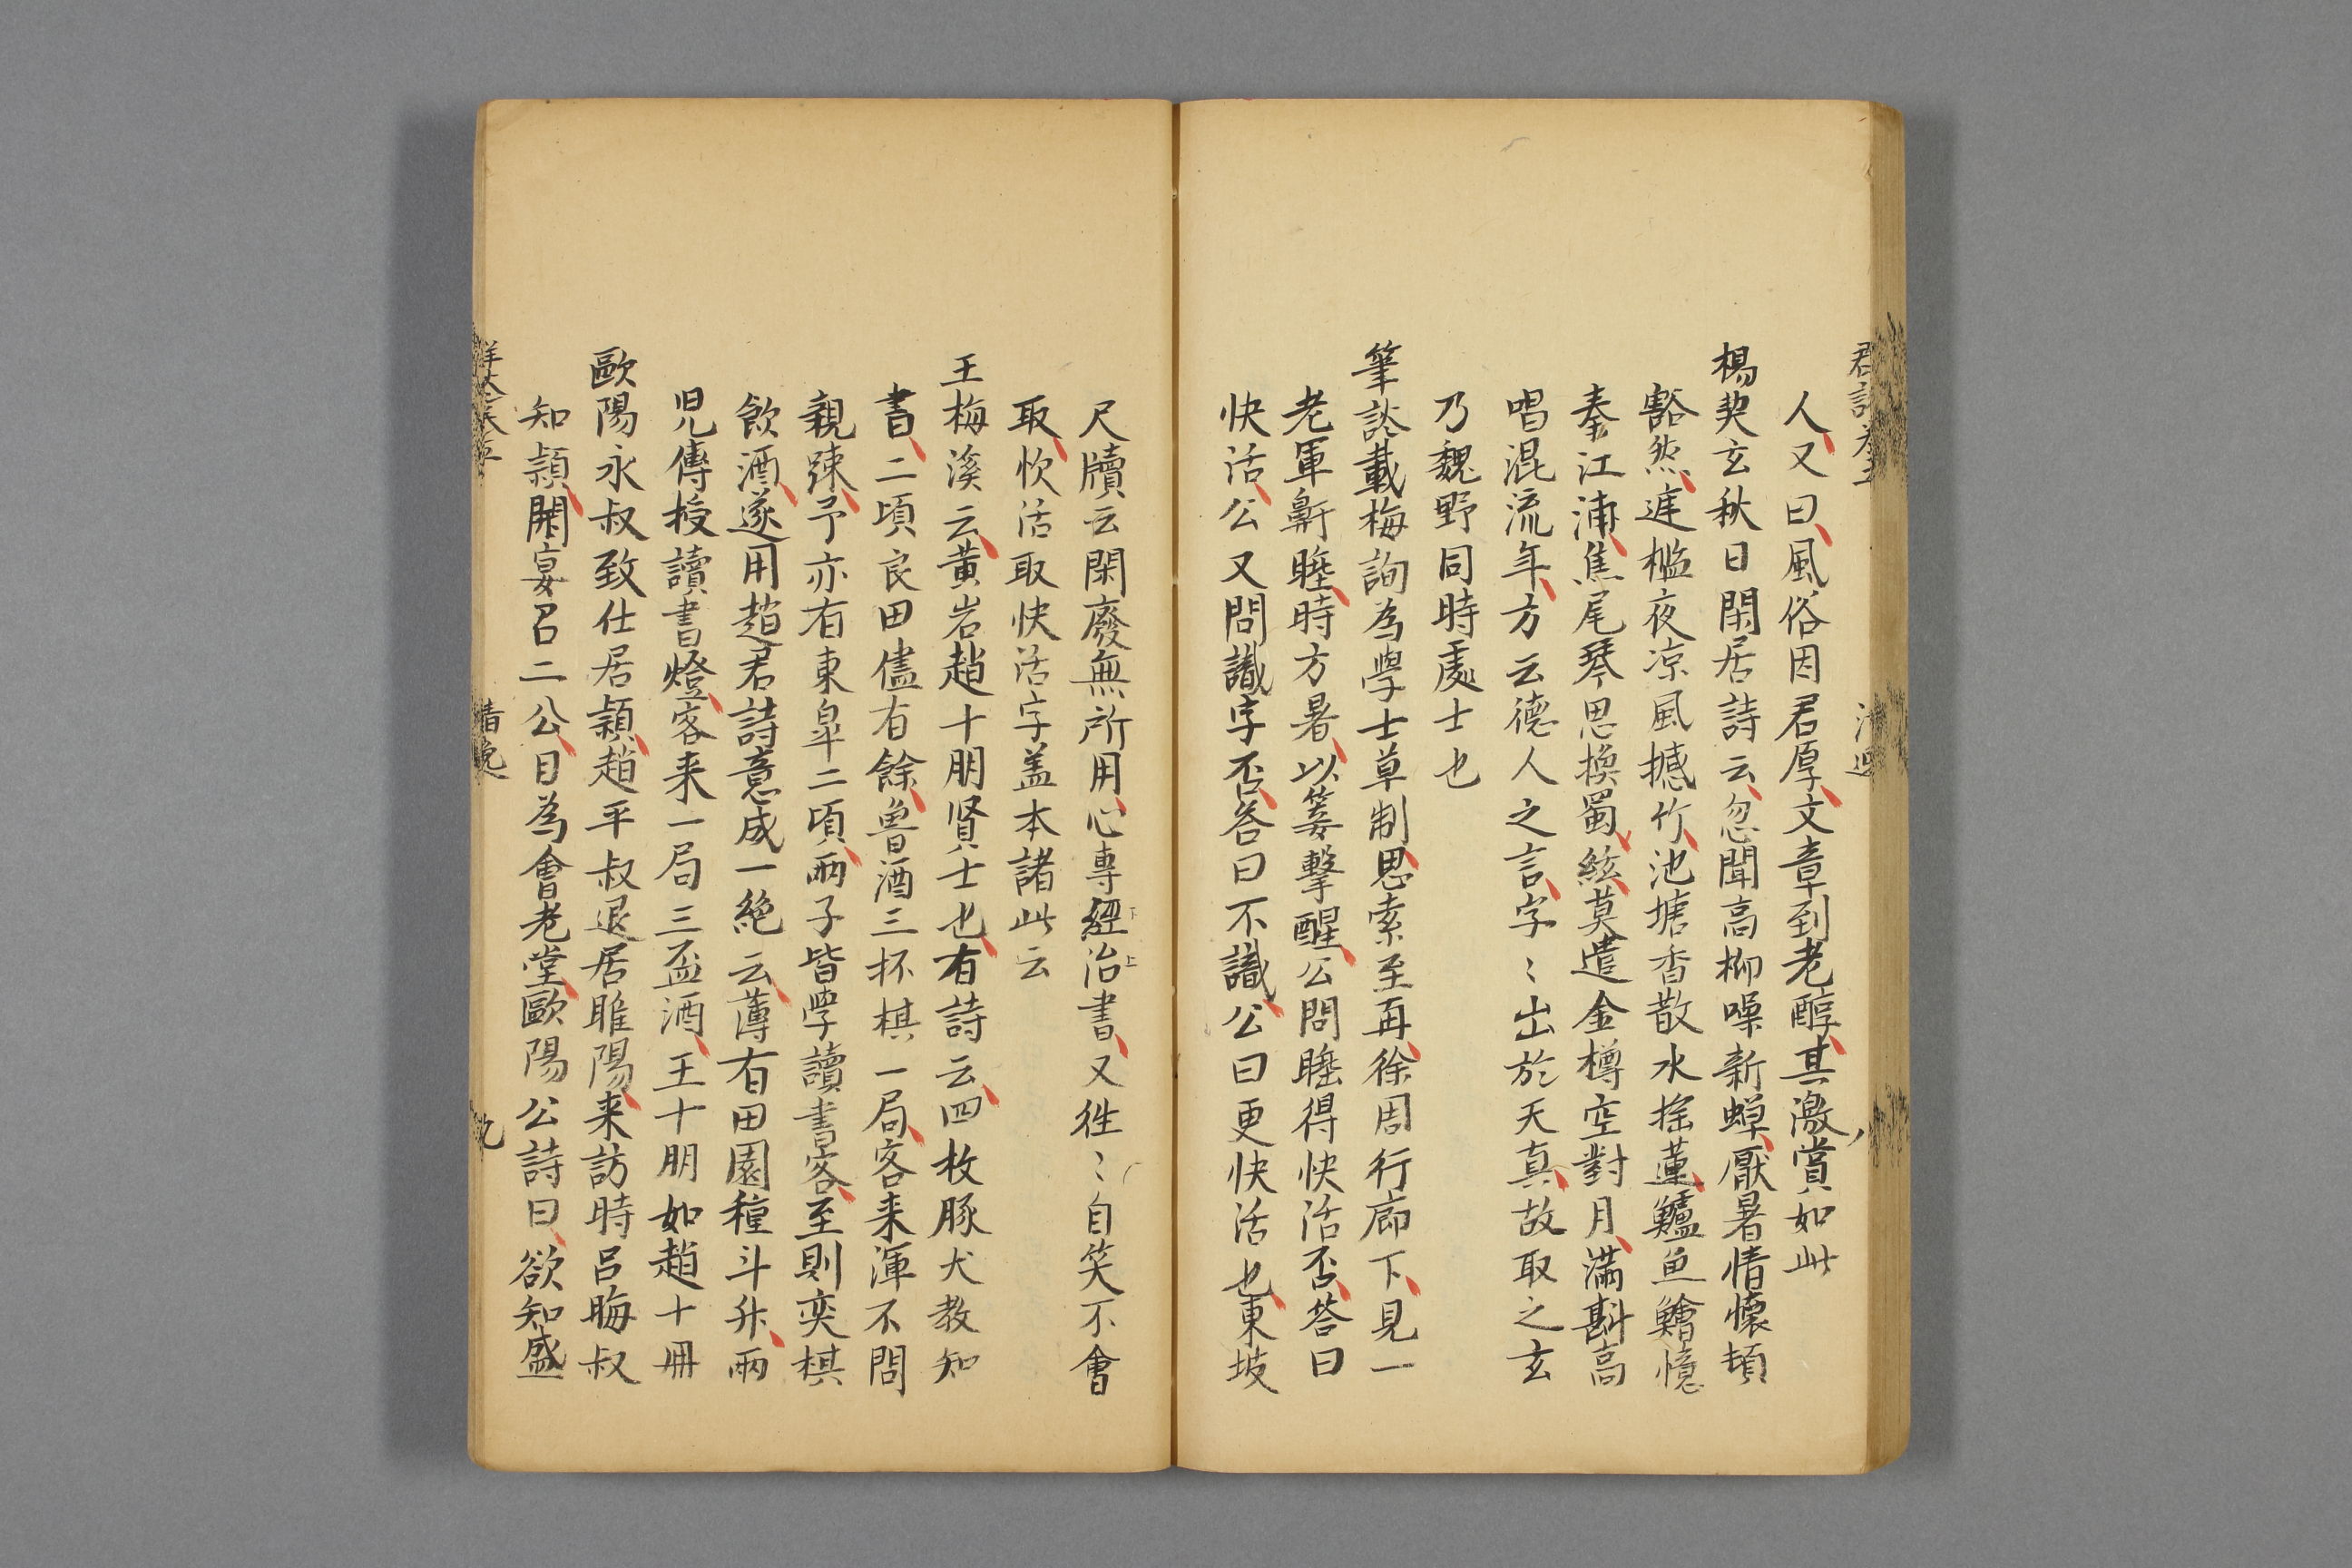 人又曰風俗因君厚文章到老醇其激賞如此
楊契玄秋日閑居詩云忽聞高柳噪新蟬厭暑情懷頓
豁然遅檻夜凉風撼竹池塘香散水揺蓮鱸魚鱠憶
秦江浦焦尾琴思換蜀絃莫遣金樽空對月滿斟高
唱混流年方云德人之言字〻出於天真故取之玄
乃魏野同時處士也
筆談載梅詢為學士草制思索至再徐周行廊下見一
老軍鼾睡時方暑以箠擊醒公問睡得快活否荅曰
快活公又問識字否荅曰不識公曰更快活也東坡
尺牘云閑廢無所用心專經治書又徃〻自笑不會
取快活取快活字盖本諸此云
王梅溪云黄岩趙十朋賢士也有詩云四枚豚犬教知
書二頃良田儘有餘魯酒三杯棋一局客来渾不問
親踈予亦有東皐二頃兩子皆學讀書客至則奕棋
飲酒遂用趙君詩意成一絶云薄有田園種斗升兩
児傳授讀書燈客来一局三盃酒王十朋如趙十冊
歐陽永叔致仕居潁趙平叔退居睢陽来訪時呂晦叔
知潁開宴召二公目為會老堂歐陽公詩曰欲知盛
九